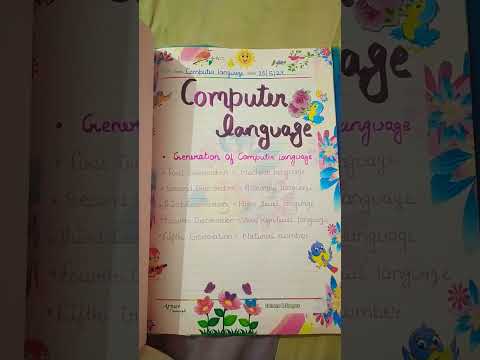 Computer language
Computer
language
• Generation of Computer language
• First Generation - Machine language
• Second Generation - Assembly language
• Third Generation - High level language
• Fourth Generation - Very high level language
• Fifth Generation - Natural number